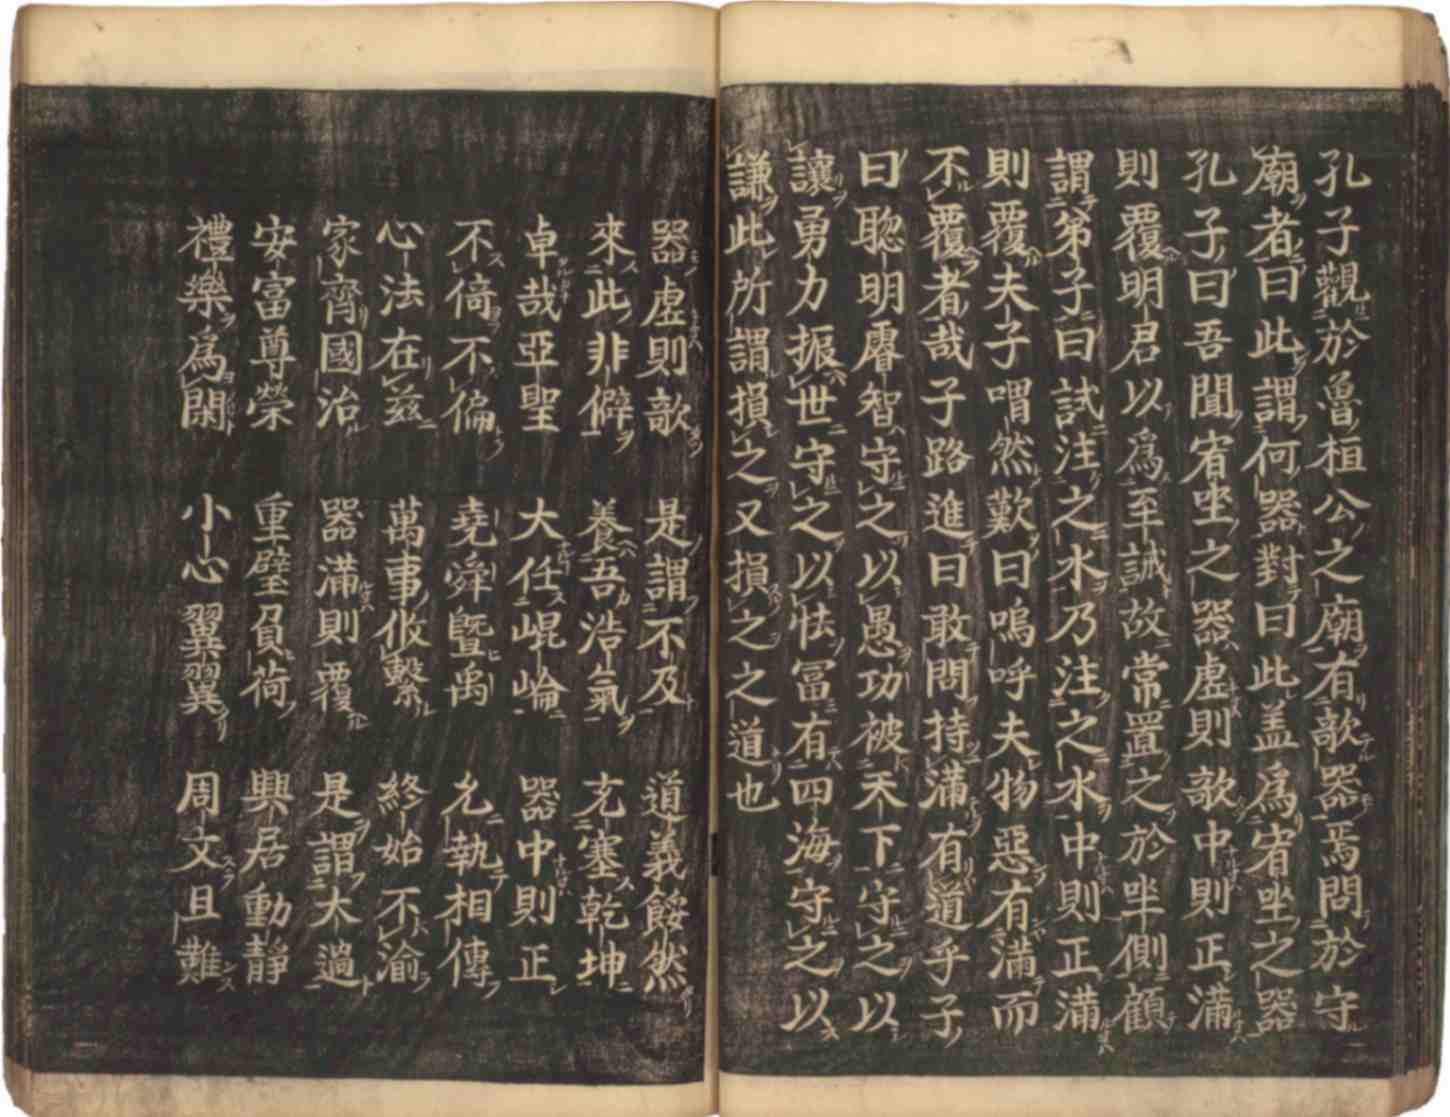 孔子觀於魯桓公之廟有欹器焉問於守
廟者曰此謂何器對曰此盖爲宥坐之器
孔子曰吾聞宥坐之器虛則欹中則正滿
則覆明君以爲至誡故常置之於坐側顧
謂弟子曰試注之水乃注之水中則正滿
則覆夫子喟然歎曰嗚呼夫物惡有滿而
不覆者哉子路進曰敢問持滿有道乎子
曰聰明睿智守之以愚功被天下守之以
讓勇力振世守之以怯冨有四海守之以
謙此所謂損之又損之之道也
器虛則欹 是謂不及 道義餒然
來此非僻 養吾浩氣 充塞乾坤
卓哉亞聖 大任崐崘 器中則正
不倚不偏 堯舜曁禹 允執相傳
心法在茲 萬事攸繫 終始不渝
家齊國治 器滿則覆 是謂太過
安富尊榮 重璧負荷 興居動靜
禮樂爲閑 小心翼翼 周文且難